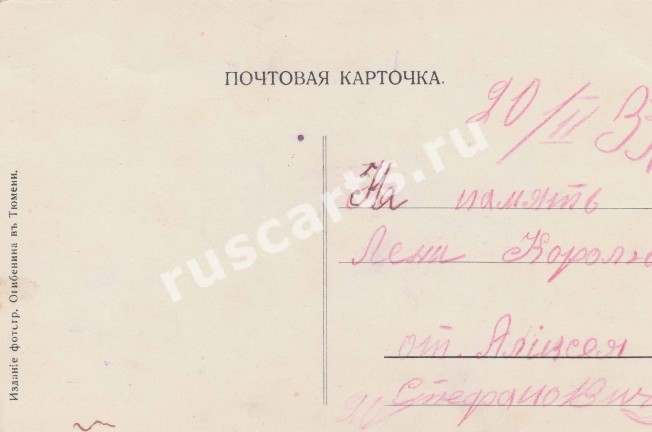 ПОЧТОВАЯ КАРТОЧКА.
20/II
На память
Лени
от Алексея
Изданіе фотогр. Огибенина въ Тюмени.
ruscarts.ru